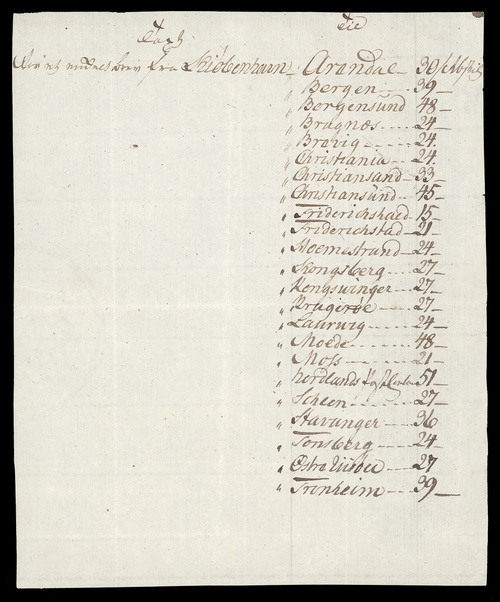 Taxt Til
For et enkelt brev fra Kiöbenhavn Arendal 30 s
" Bergen 39
" Borgensund 48
" Bragnæs 24
" Brevig 24.
" Christiania 24.
" Christiansand 33
" Christiansund 45
" Friderichshald 15
" Friderichstad 21
" Hoemestrand 24
" Kongsberg 27
" Kongswinger 27
" Kragerøe 27
" Laurwig 24
" Molde 48
" Moss 21
" Nordlands 51
" Scheen 27
" Stavanger 36
" Tonsberg 24
" Østra Riisöer 27
" Tronheim 39